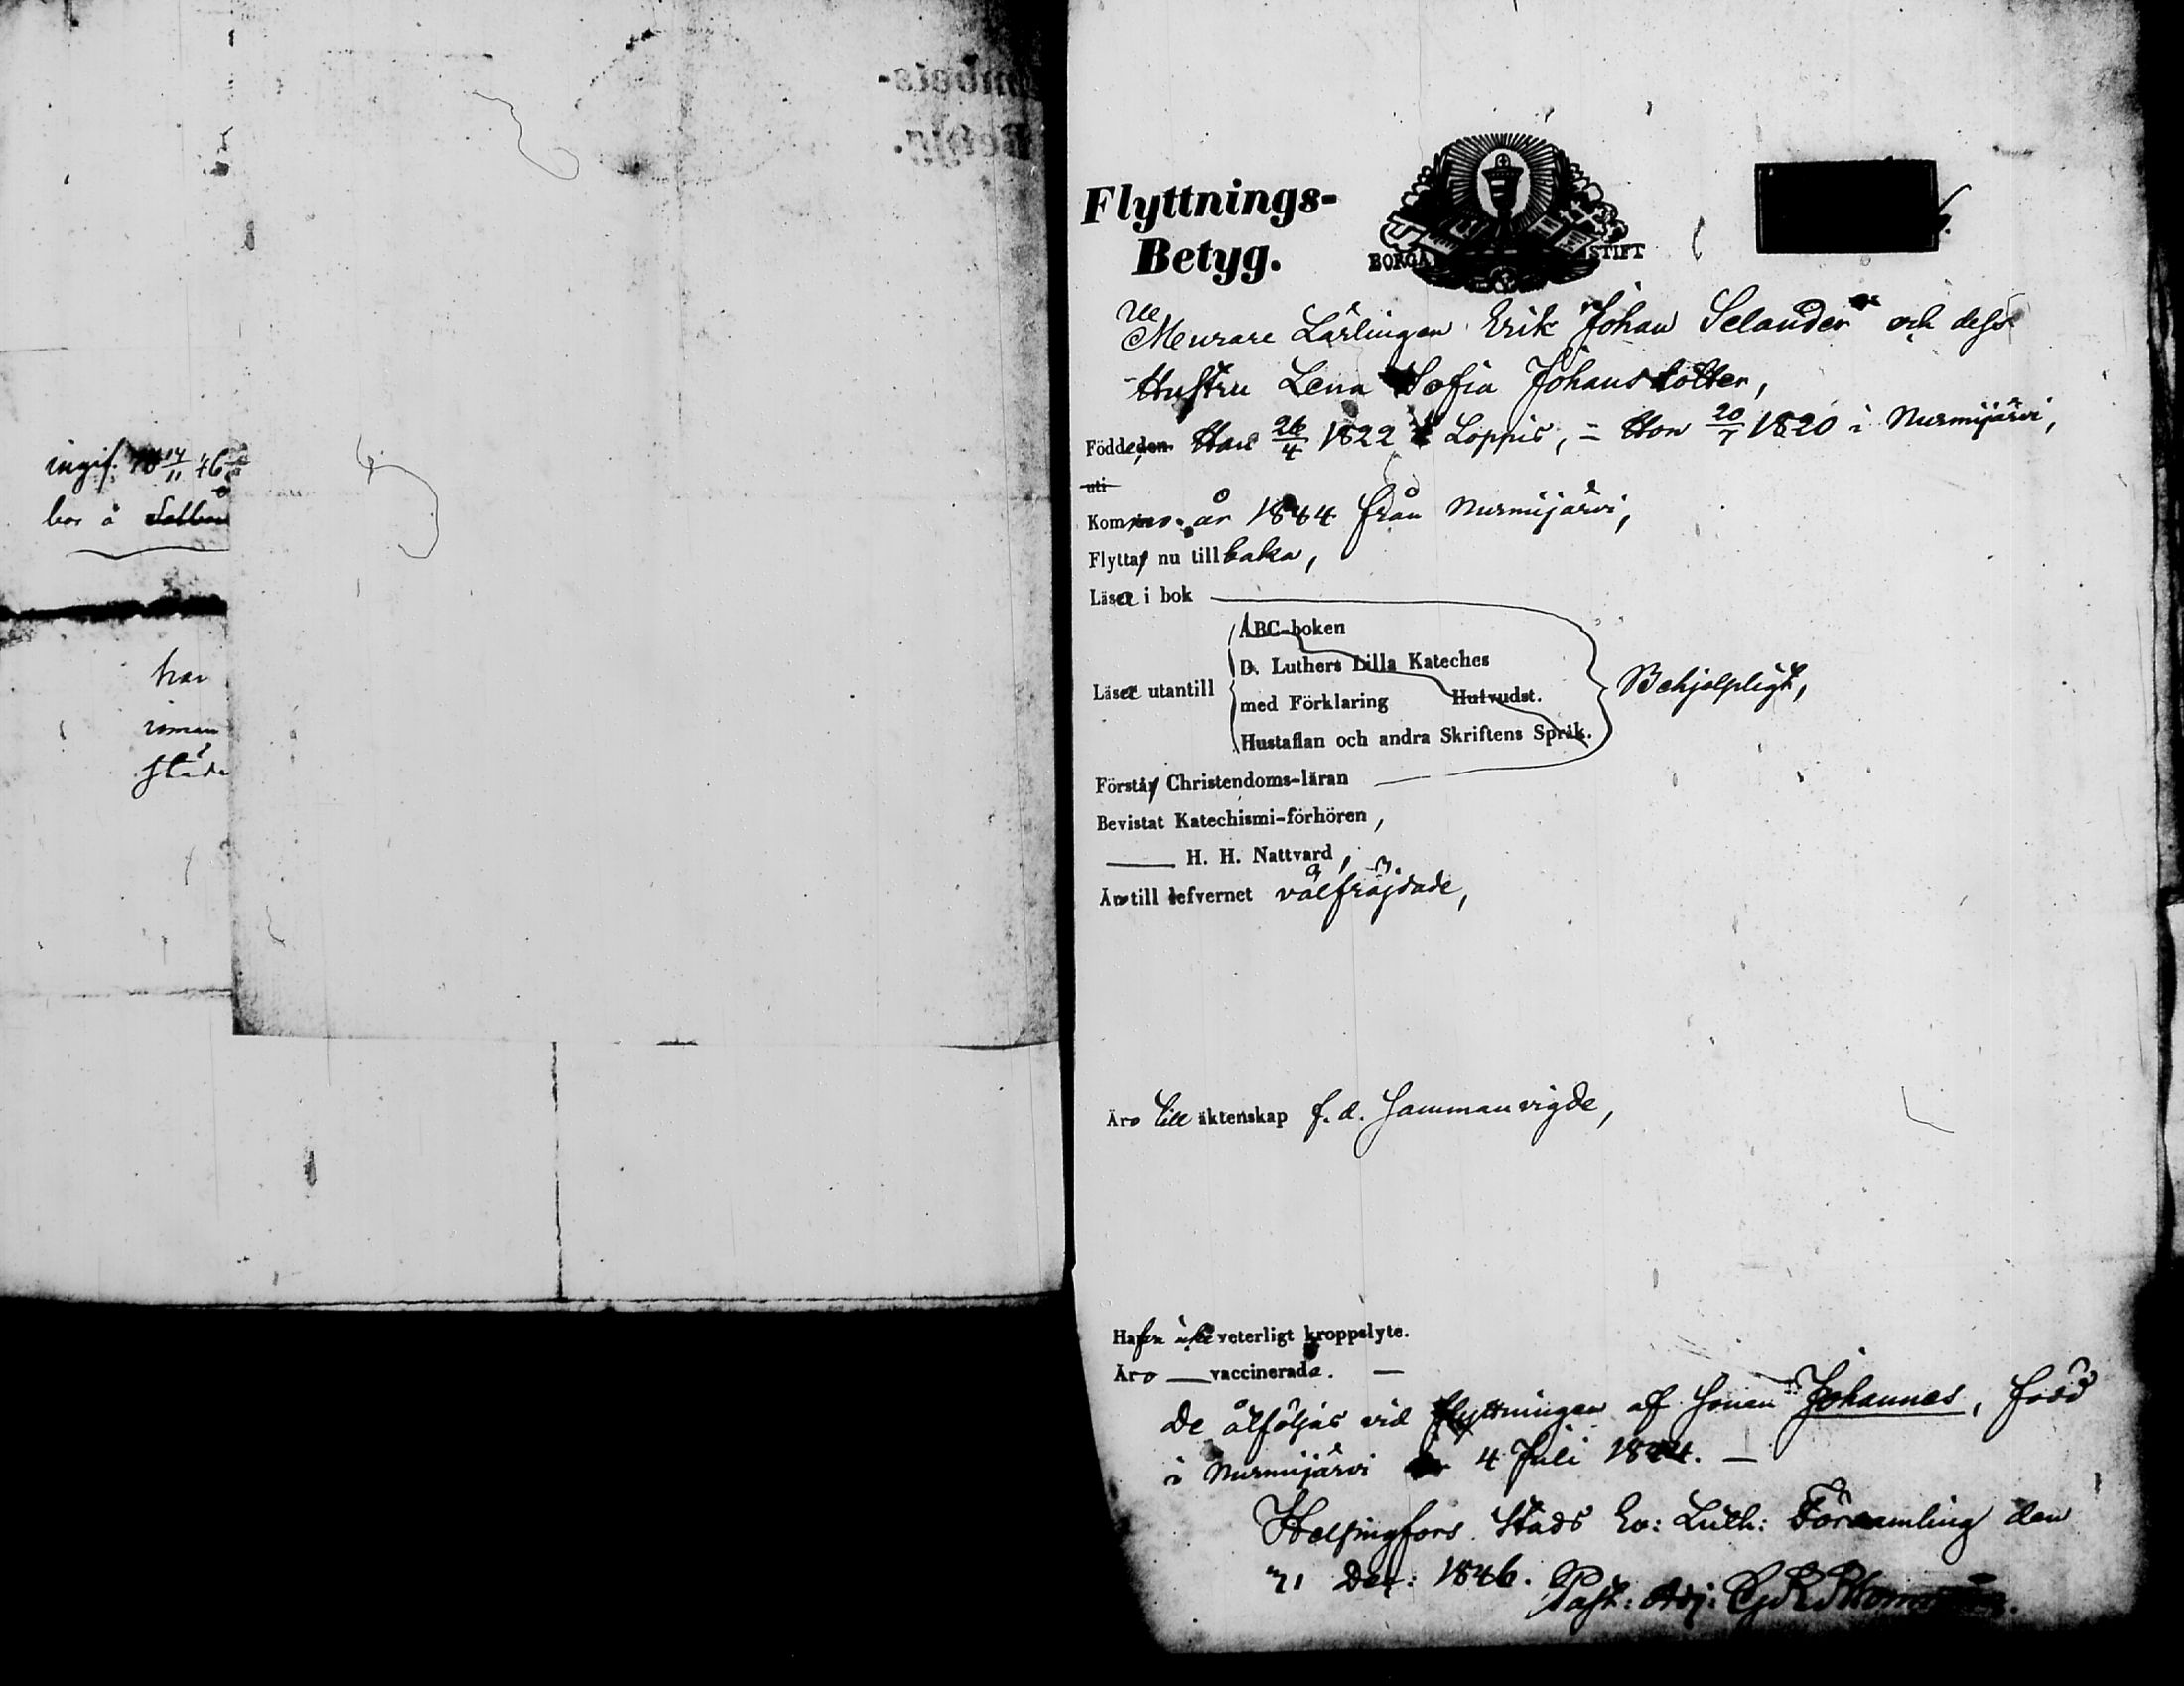 ingif. 14/11 46
bor å
har
Flyttnings-
Betyg.
BORGÅ STIFT
Murare Lärlingen Erik Johan Selander och dess
Hustru Lena Sofia Johansdotter,
Födde, den Han 26/4 1822 i Loppis, = Hon 20/7 1820 i Nurmijärvi,
uti
Kommo år 1844 från Nurmijärvi,
Flytta nu tillbaka,
Läsa i bok
ABC-boken
D. Luthers Lilla Kateches
Läsa utantill med Förklaring Hufvudst. Behjelpligt,
Hustaflan och andra Skriftens Språk.
Förstå Christendoms-läran
Bevistat Katechismi-förhören,
H. H. Nattvard,
Äro till lefvernet välfräjdade,
Äro till äktenskap f. d. sammanvigde,
Hafva icke veterligt kroppslyte.
Äro — vaccinerade. —
De åtföljas vid flyttningen af sonen Johannes, född
i Nurmijärvi 4 Juli 1844. —
Helsingfors Stads Ev: Luth: Församling den
Dec: 1846. Past: Adj: